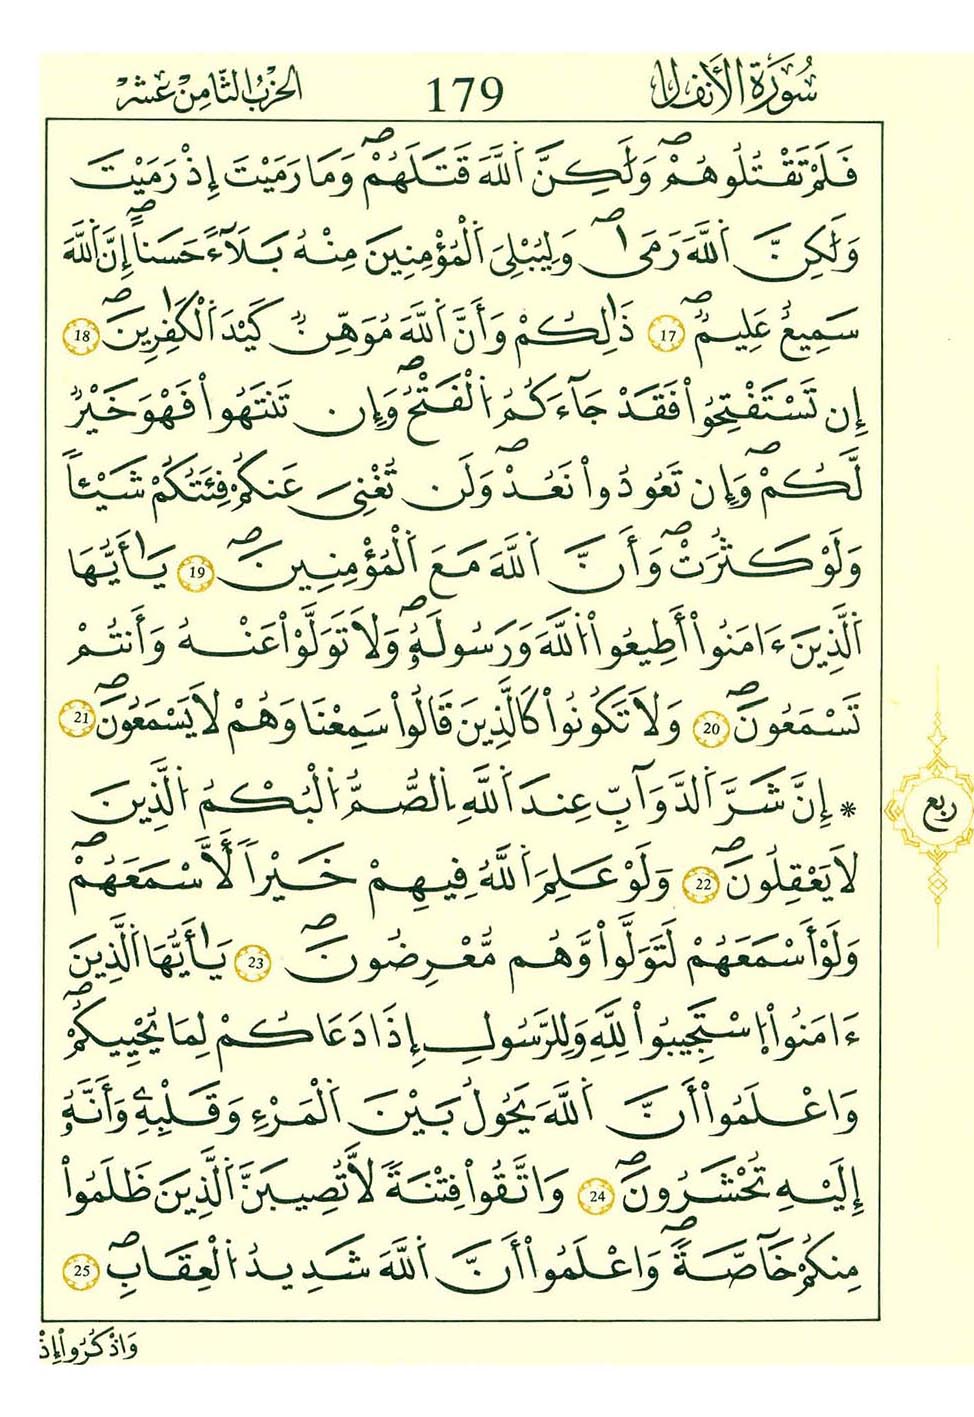 سُورَةُ الأَنفَالِ 179 الحِزْبُ الثَّامِنَ عَشَرَ
فَلَمْ تَقْتُلُوهُمْۖ وَلَٰكِنَّ اَ۬للَّهَ قَتَلَهُمْۖ وَمَا رَمَيْتَ إِذْ رَمَيْتَ
وَلَٰكِنَّ اَ۬للَّهَ رَمَىٰۖ وَلِيُبْلِيَ اَ۬لْمُؤْمِنِينَ مِنْهُ بَلَآءً حَسَناًۖ إِنَّ اَ۬للَّهَ
سَمِيعٌ عَلِيمٌۖ 17 ذَٰلِكُمْ وَأَنَّ اَ۬للَّهَ مُوَهِّنٌ كَيْدَ اَ۬لْكَٰفِرِينَۖ 18
إِن تَسْتَفْتِحُواْ فَقَدْ جَآءَكُمُ اُ۬لْفَتْحُۖ وَإِن تَنتَهُواْ فَهْوَ خَيْرٌ
لَّكُمْۖ وَإِن تَعُودُواْ نَعُدْۖ وَلَن تُغْنِيَ عَنكُمْ فِئَتُكُمْ شَيْـٔاً
وَلَوْ كَثُرَتْۖ وَأَنَّ اَ۬للَّهَ مَعَ اَ۬لْمُؤْمِنِينَۖ 19 يَٰأَيُّهَا
اَ۬لَّذِينَ ءَامَنُواْ أَطِيعُواْ اُ۬للَّهَ وَرَسُولَهُۥۖ وَلَا تَوَلَّوْاْ عَنْهُ وَأَنتُمْ
تَسْمَعُونَۖ 20 وَلَا تَكُونُواْ كَالَّذِينَ قَالُواْ سَمِعْنَا وَهُمْ لَا يَسْمَعُونَۖ 21
* إِنَّ شَرَّ اَ۬لدَّوَآبِّ عِندَ اَ۬للَّهِ اِ۬لصُّمُّ اُ۬لْبُكْمُ اُ۬لَّذِينَ
ربع
لَا يَعْقِلُونَۖ 22 وَلَوْ عَلِمَ اَ۬للَّهُ فِيهِمْ خَيْراً لَّأَسْمَعَهُمْۖ
وَلَوْ أَسْمَعَهُمْ لَتَوَلَّواْ وَّهُم مُّعْرِضُونَۖ 23 يَٰأَيُّهَا اَ۬لَّذِينَ
ءَامَنُواْ اُ۪سْتَجِيبُواْ لِلهِ وَلِلرَّسُولِ إِذَا دَعَاكُمْ لِمَا يُحْيِيكُمْۖ
وَاعْلَمُواْ أَنَّ اَ۬للَّهَ يَحُولُ بَيْنَ اَ۬لْمَرْءِ وَقَلْبِهِۦ وَأَنَّهُۥ
إِلَيْهِ تُحْشَرُونَۖ 24 وَاتَّقُواْ فِتْنَةً لَّا تُصِيبَنَّ اَ۬لَّذِينَ ظَلَمُواْ
مِنكُمْ خَآصَّةًۖ وَاعْلَمُواْ أَنَّ اَ۬للَّهَ شَدِيدُ اُ۬لْعِقَابِۖ 25
وَاذْكُرُواْ إِذْ